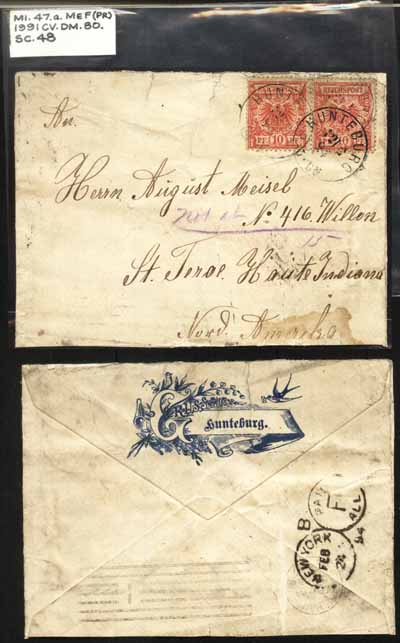 MI. 47.a. MEF (PR)
1991 CV. DM. 80.
SC. 48
REICHSPOST
PF 10 PF
HUNTEBURG
An
Herrn August Meisel
Not at
No 416. Willon
15
St. Teroe. Haute Indiana
Nord. Amerika
GRUSS
Hunteburg.
B
F
ALL
NEW YORK
FEB
24
94